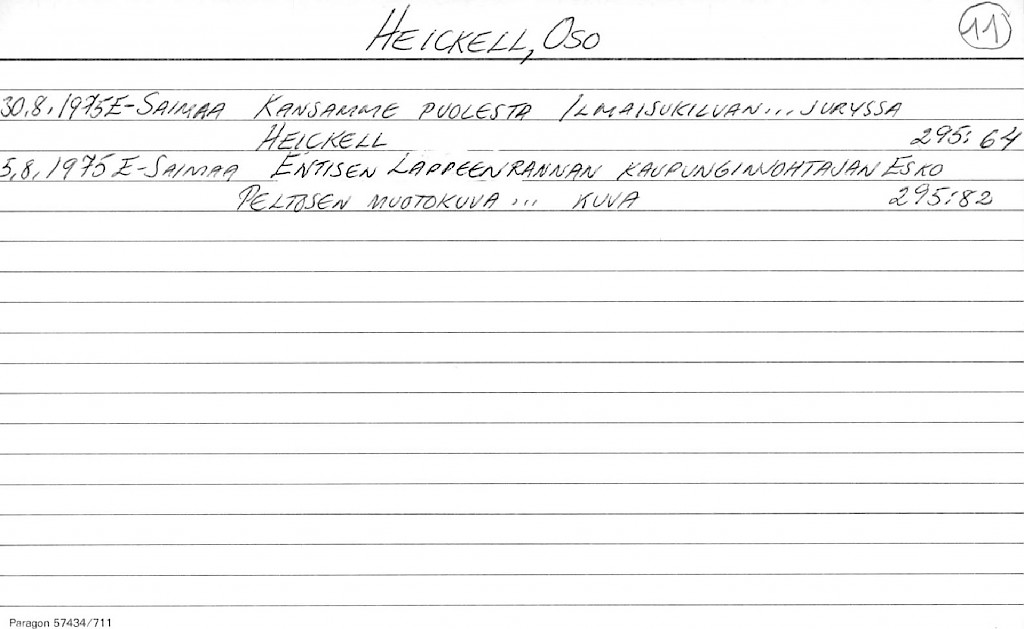 HEICKELL, OSO
11
30.8.1975 E-SAIMAA KANSAMME PUOLESTA ILMAISUKILVAN... JURYSSA
HEICKELL 295:64
5.8.1975 E-SAIMAA ENTISEN LAPPEENRANNAN KAUPUNGINJOHTAJAN ESKO
PELTOSEN MUOTOKUVA ... KUVA 295:82
Paragon 57434/711